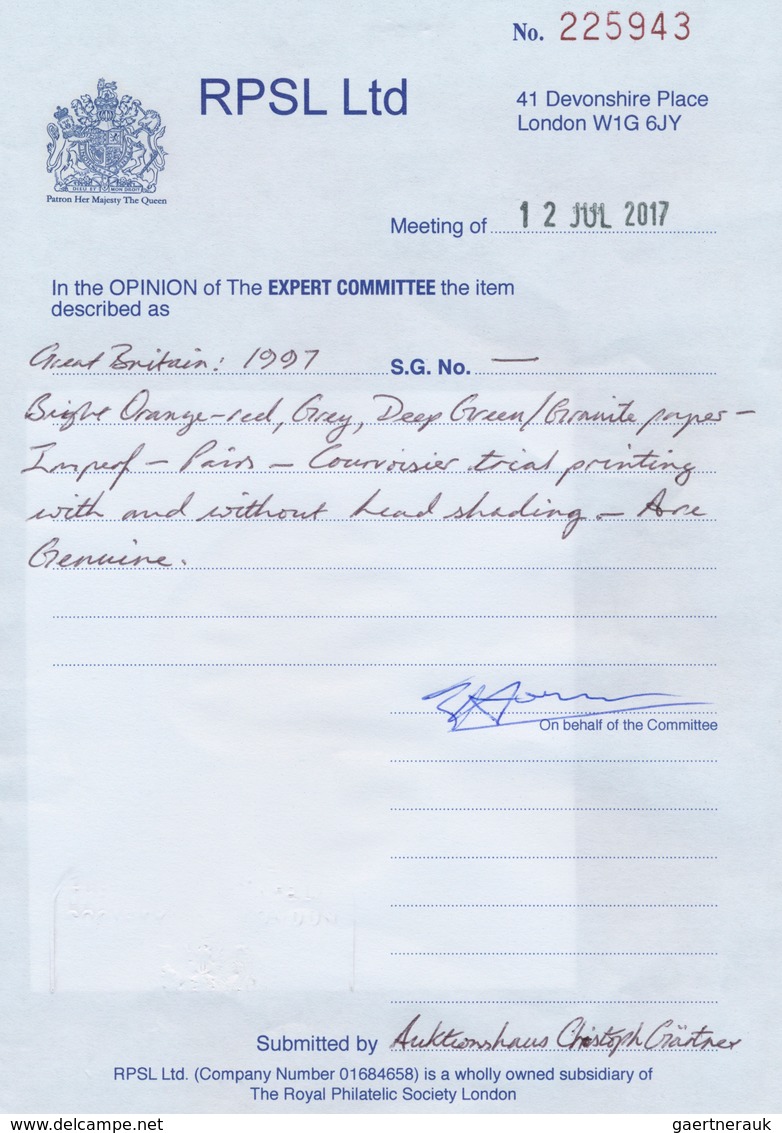 No. 225943
RPSL Ltd
41 Devonshire Place
London W1G 6JY
DIEU ET MON DROIT
Patron Her Majesty The Queen
Meeting of 12 JUL 2017
In the OPINION of The EXPERT COMMITTEE the item
described as
Great Britain: 1997 S.G. No. —
Bright Orange-red, Grey, Deep Green/Granite paper -
Imperf - Pairs - Courvoisier trial printing
with and without head shading - Are
Genuine.
On behalf of the Committee
Submitted by Auktionshaus Christoph Gärtner
RPSL Ltd. (Company Number 01684658) is a wholly owned subsidiary of
The Royal Philatelic Society London
gaertnerauk